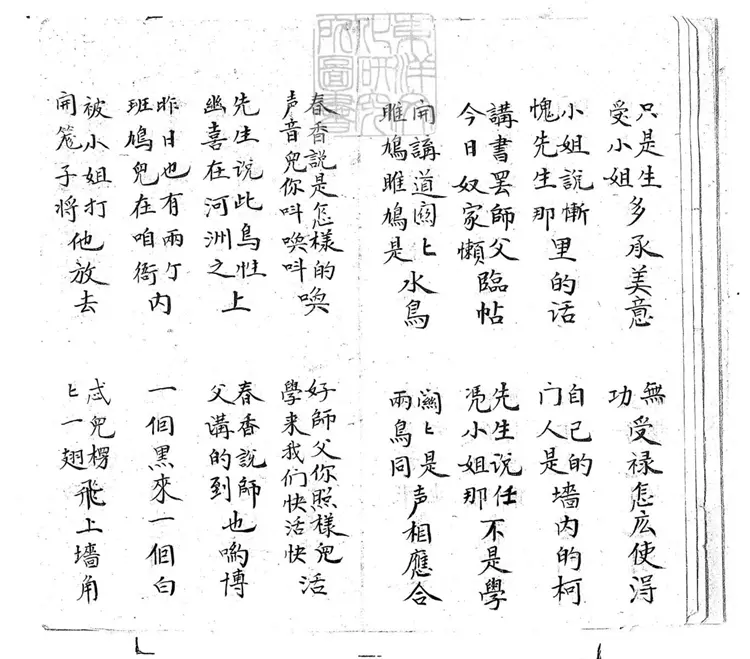 只是生受小姐多承美意
無功受禄怎庅使淂
小姐說慚愧先生那里的话
自己的门人是墻内的柯
講書罢師父今日奴家懶臨帖
先生说任凭小姐那不是學
開講道關〻雎鳩雎鳩是水鳥
關〻是兩鳥同声相應合
春香説是怎樣的声音兒你呌喚呌喚
好師父你照樣兒學来我们快活快活
先生说此鳥性幽喜在河洲之上
春香說師父講的到也喲博
昨日也有兩个班鳩兒在咱衙内
一個黑來一個白
被小姐打開笼子將他放去
忒兒楞〻一翅飛上墻角
東洋文化研究所圖書